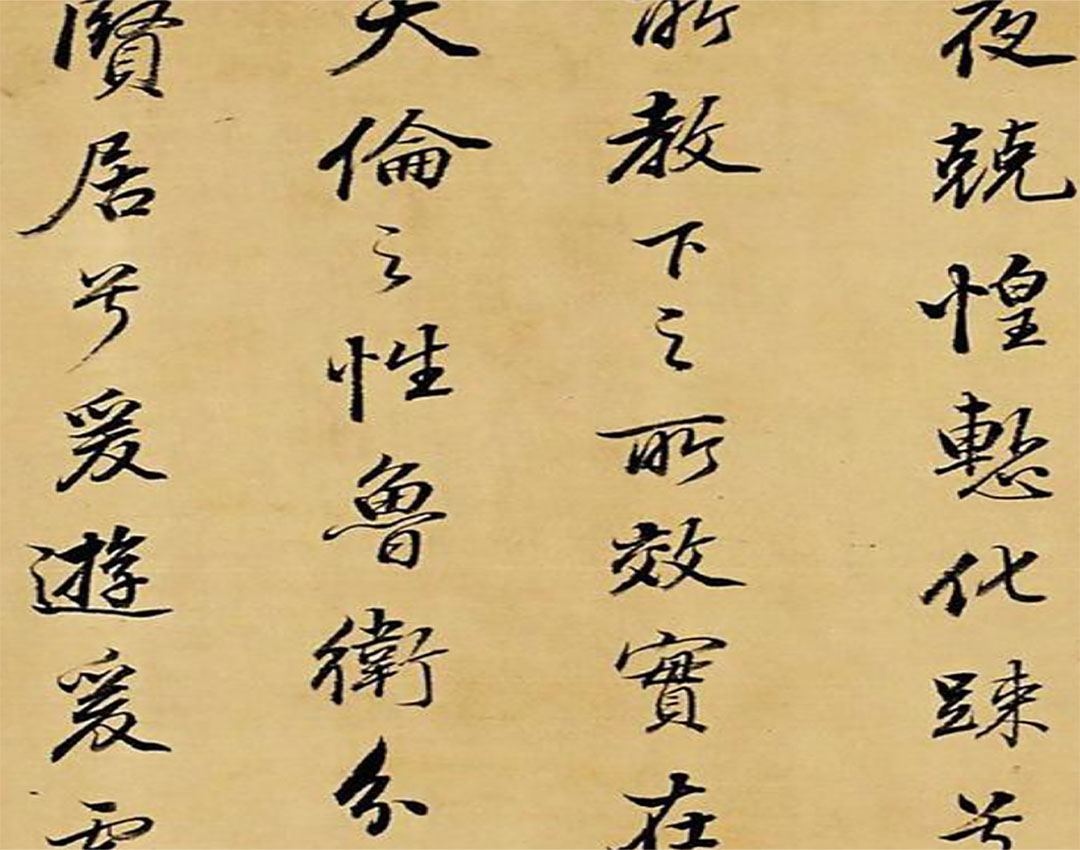 夜兢惶慙化踈兮
所教下之所效實在
天倫之性魯衛分
賢居兮爰遊爰